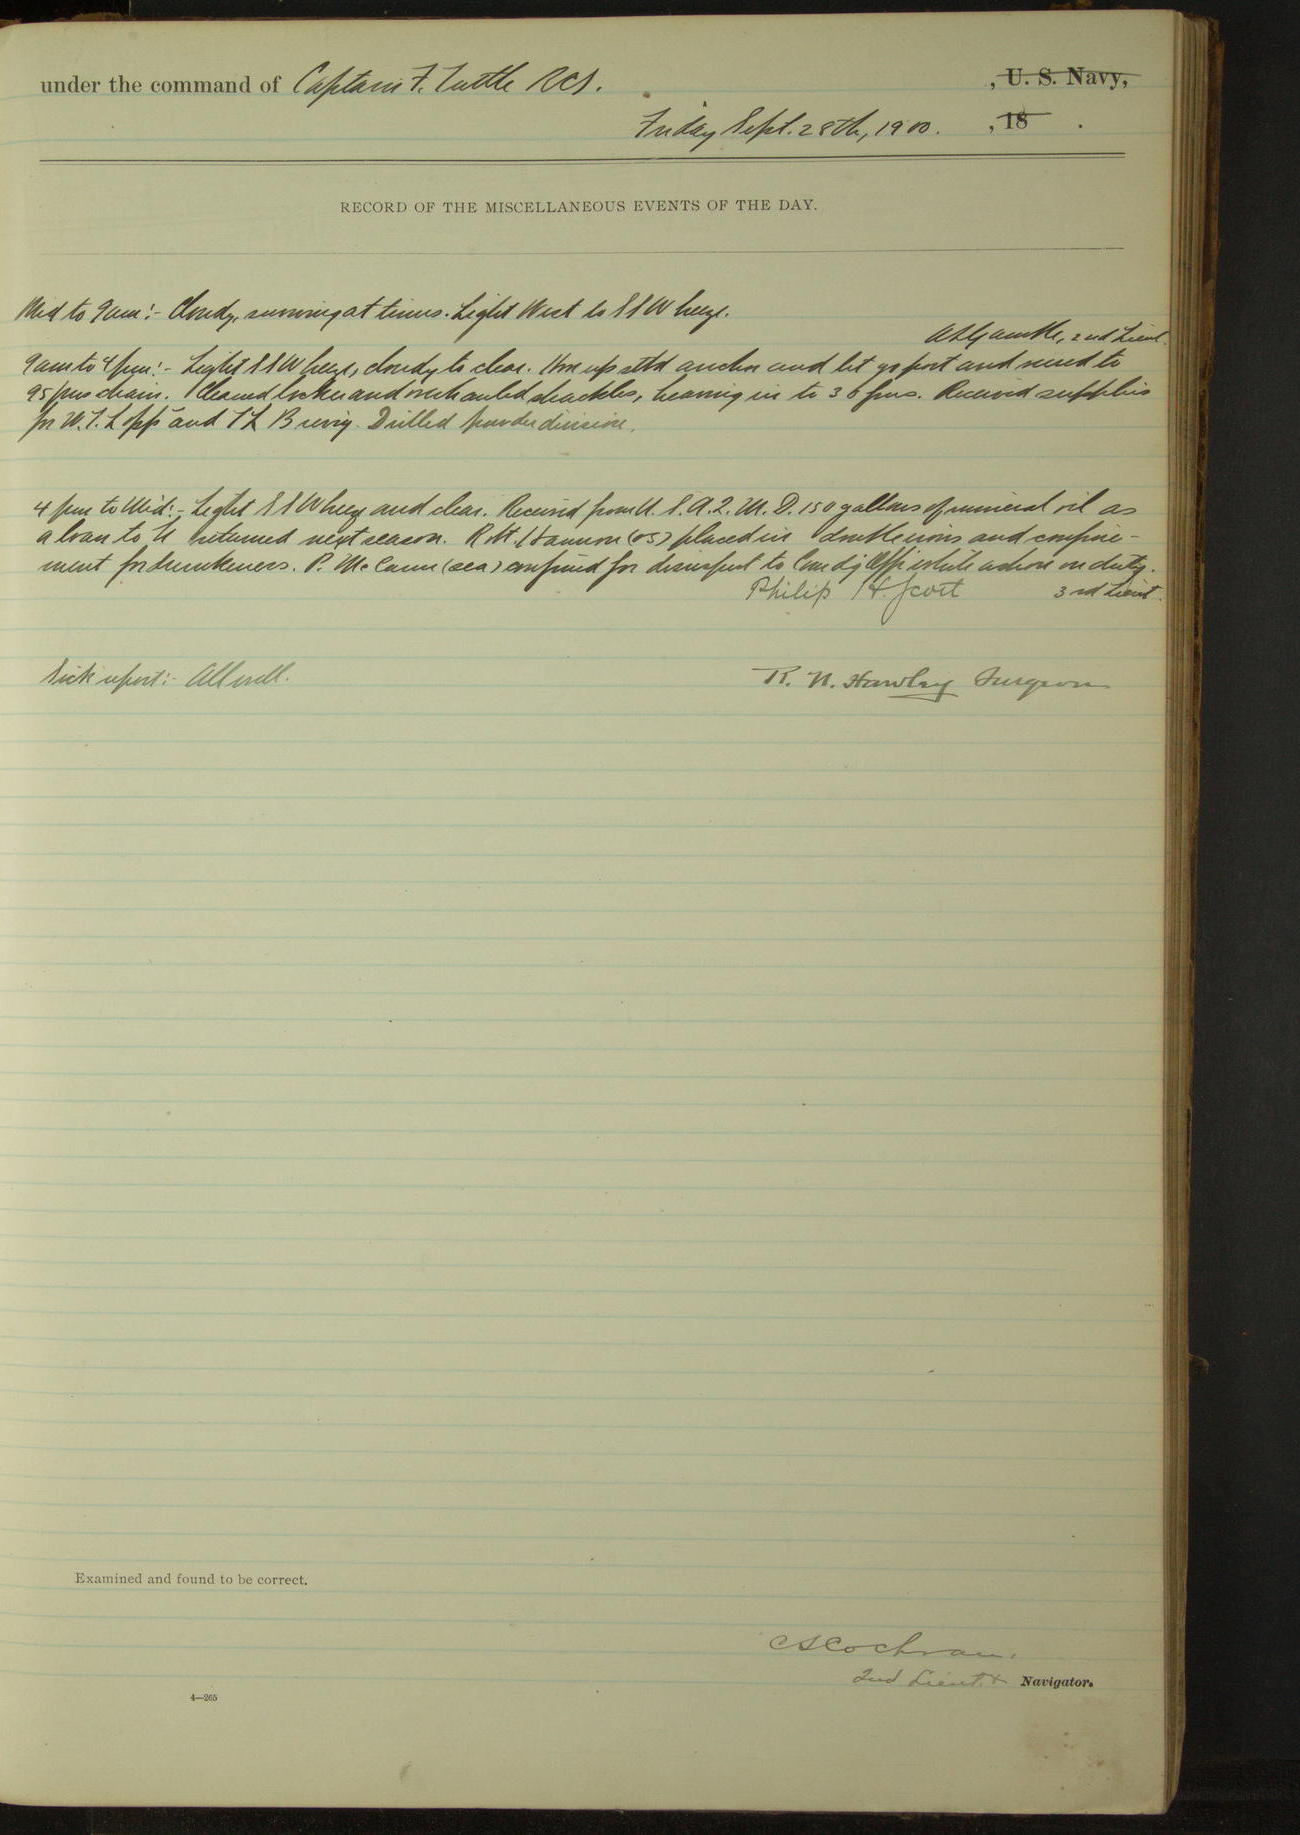 under the command of Captain F. Tuttle RCS. , U. S. Navy,
Friday Sept. 28th, 1900. , 18 .
RECORD OF THE MISCELLANEOUS EVENTS OF THE DAY.
Mid to 9am:- Cloudy, snowing at times. Light West to SSW breeze.
2nd Lieut.
9am to 4pm:- Light SSW breeze, cloudy to clear. Hove up stbd anchor and let go port and veered to
95 fms chain. Cleaned locker and overhauled shackles, heaving in to 36 fms. Received supplies
for W. T. Lopp and T L Brevig. Drilled powder division.
4 pm to Mid:- Light SSW breeze and clear. Received from U. S. A. Q. M. D. 150 gallons of mineral oil as
a loan to be returned next season. Robt. Hannon (OS) placed in double irons and confine-
ment for drunkenness. P. McCann (sea) confined for disrespect to Comdg Offr while ashore on duty.
Philip H. Scott 3rd Lieut.
Sick report:- All well. R. N. Hawley Surgeon
Examined and found to be correct.
C S Cochran.
2nd Lieut. & Navigator.
4—265